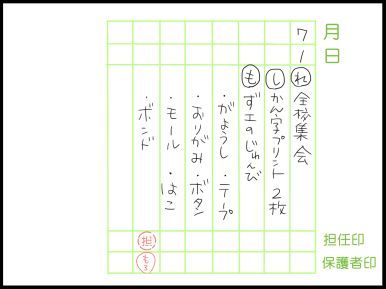 月
日
担任印
保護者印
7
1
れ 全校集会
し かん字プリント 2枚
も ず工のじゅんび
・がようし ・テープ
・おりがみ ・ボタン
・モール ・はこ
・ボンド
担